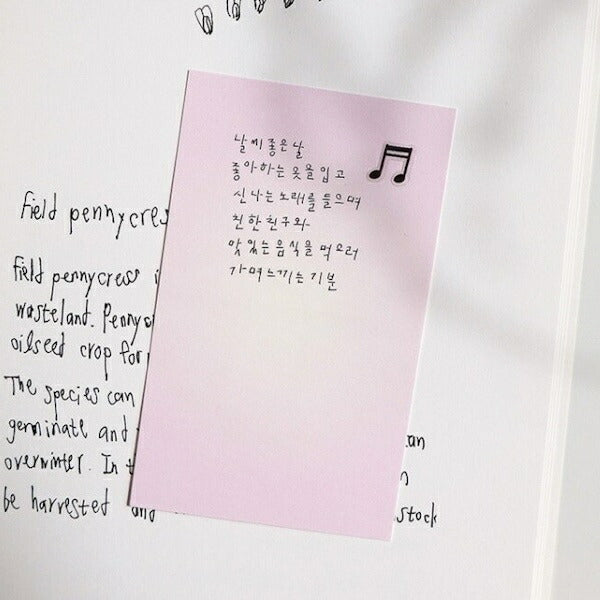 Field pennycres
날씨 좋은 날
좋아하는 옷을 입고
신나는 노래를 들으며
친한 친구와
맛있는 음식을 먹으러
가며 느끼는 기분
Field pennycress i
wasteland. Penny
oilseed crop for
The species can
germinate and
overwinter. In t
be harvested and
stock